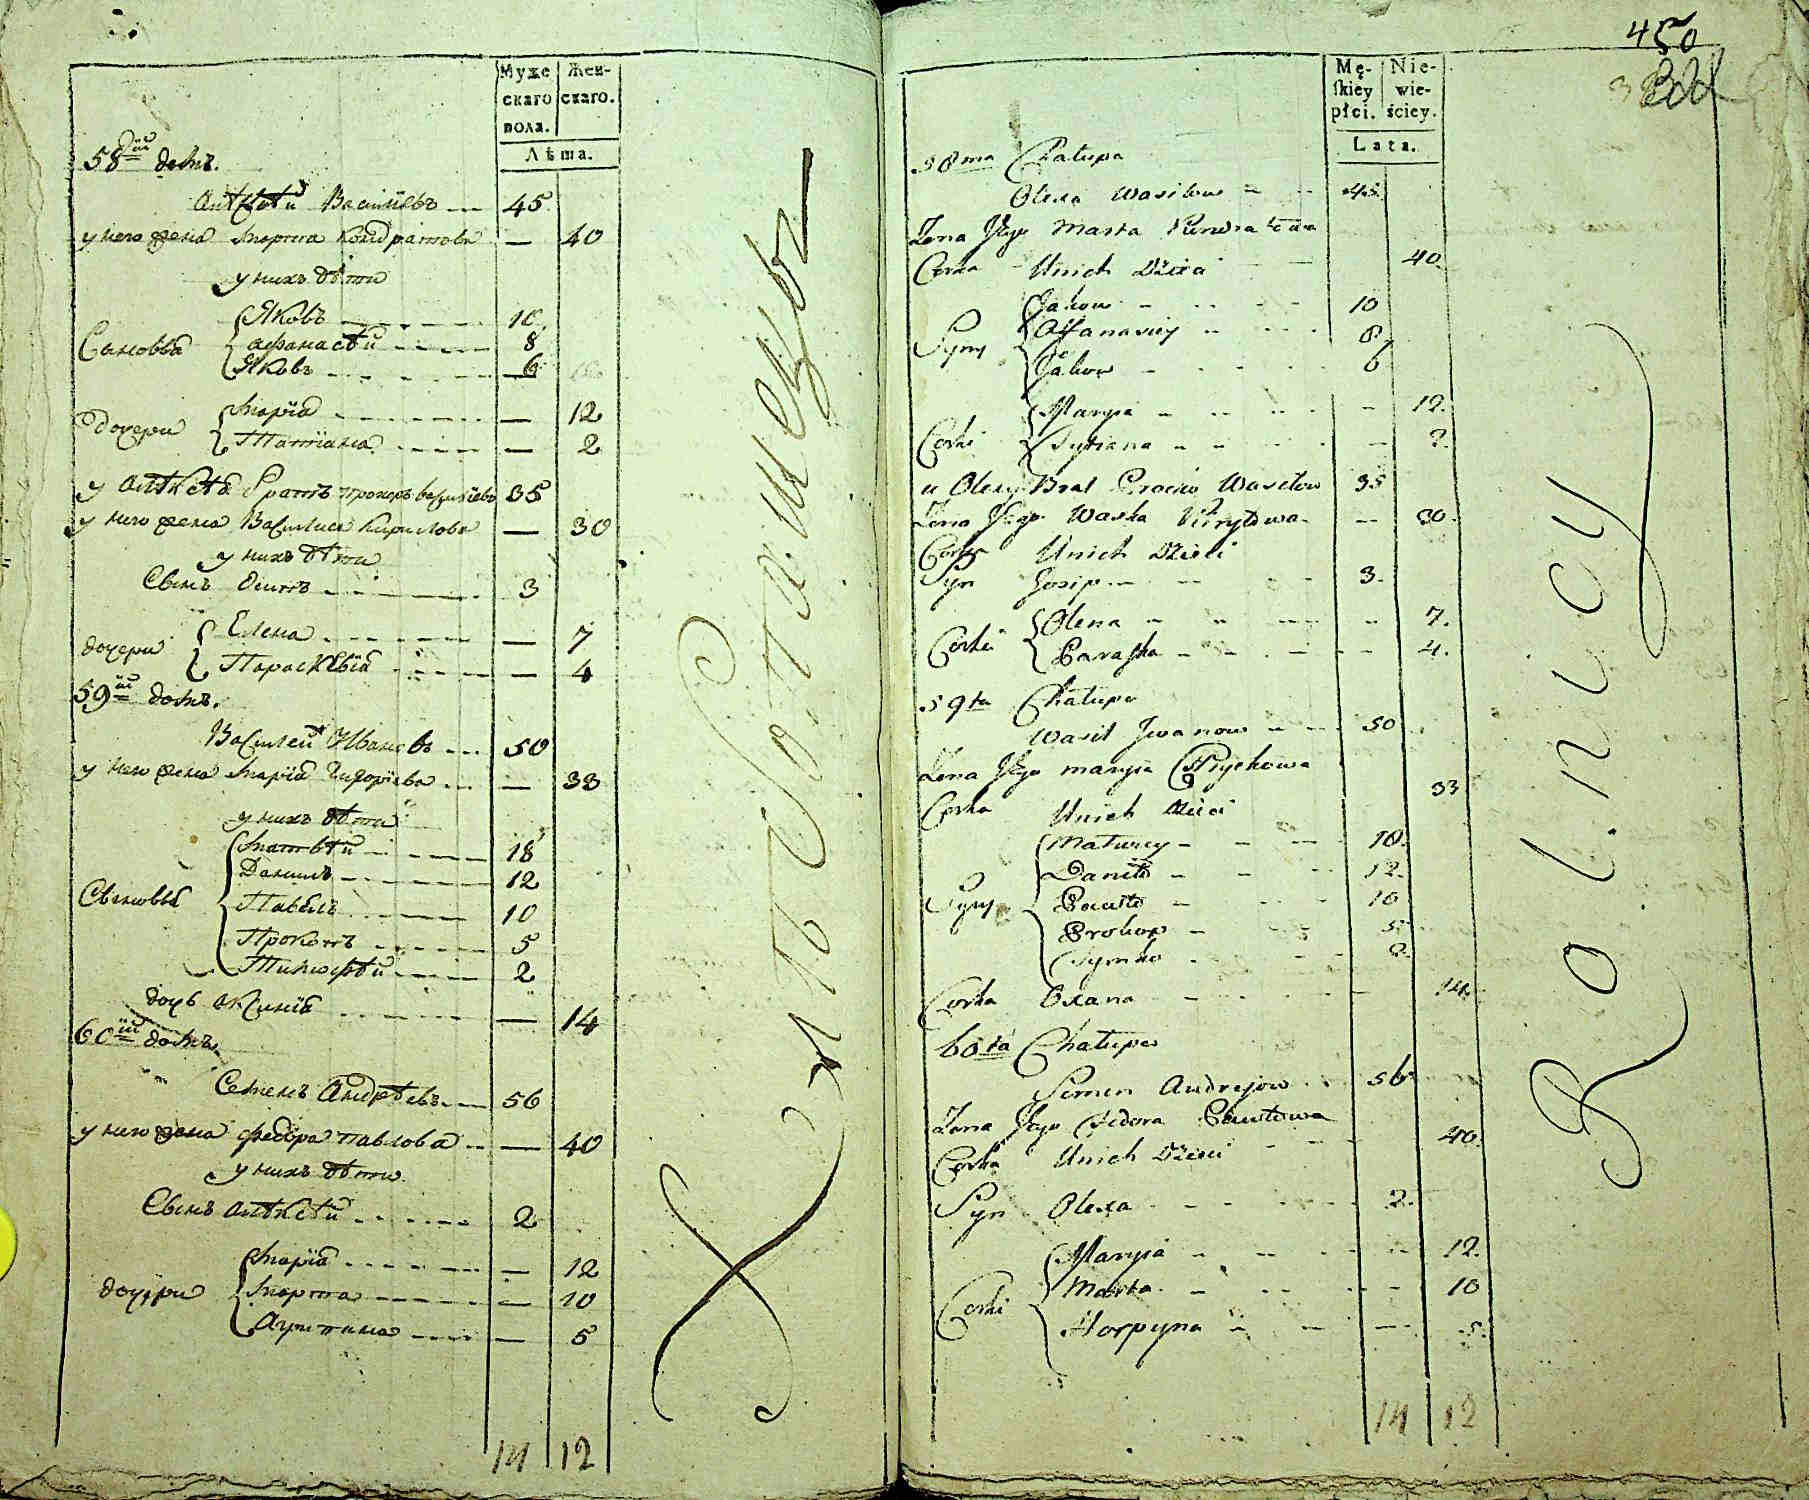 Муже
скаго
пола.
Жен-
скаго.
Лѣта.
58й домъ.
Алѣксѣй Василіевъ 45
у него жена Марта Кондратова — 40
у нихъ дѣти
Сыновья
Яковъ 10
Афанасѣй 8
Яковъ 6
дочери
Марія — 12
Татіана — 2
у Алѣксѣя братъ прокоръ василіевъ 35
у него жена Василиса Кирилова — 30
у нихъ дѣти
Сынъ Осипъ 3
дочери
Елена — 7
Параскѣвія — 4
59й домъ.
Василей Ивановъ 50
у него жена Марія — 33
у нихъ дѣти
Сыновья
Матвѣй 18
Данилъ 12
Павелъ 10
Прокопъ 5
Тимофѣй 2
дочь Аксинія — 14
60й домъ.
Семенъ Андрѣевъ 56
у него жена федора павлова — 40
у нихъ дѣти
Сынъ Алѣксѣй 2
дочери
Марія — 12
Марта — 10
Агрипина — 5
14 12
Хлѣбопашецъ
450
Mę-
skiey
płci.
Nie-
wie-
ściey.
Lata.
58ma Chałupa
Olexa Wasilow 45
Zona Jego Marta
Corka 40
Unich Dzieci
Syny
Jakow 10
Affanasiey 8
Jakow 6
Corki
Marysia 12
Tytiana 2
u Olexy Brat Wasilow 35
Zona Jego Waska Kiryłowa 30
Corka Unich Dzieci
Syn Josip 3
Corki
Olena 7
Paraska 4
59ta Chałupa
Wasil Jwanow 50
Zona Jego marysia
Corka 33
Unich Dzieci
Syny
Matwiey 18
Daniło 12
Pawło 10
Prokop 5
Tymko 2
Corka Oxana 14
60ta Chałupa
Semen Andrejow 56
Zona Jego Fedora Pawłowa
Corka 40
Unich Dzieci
Syn Olexa 2
Corki
Marysia 12
Marta 10
Horpyna 5
14 12
Rolnicy